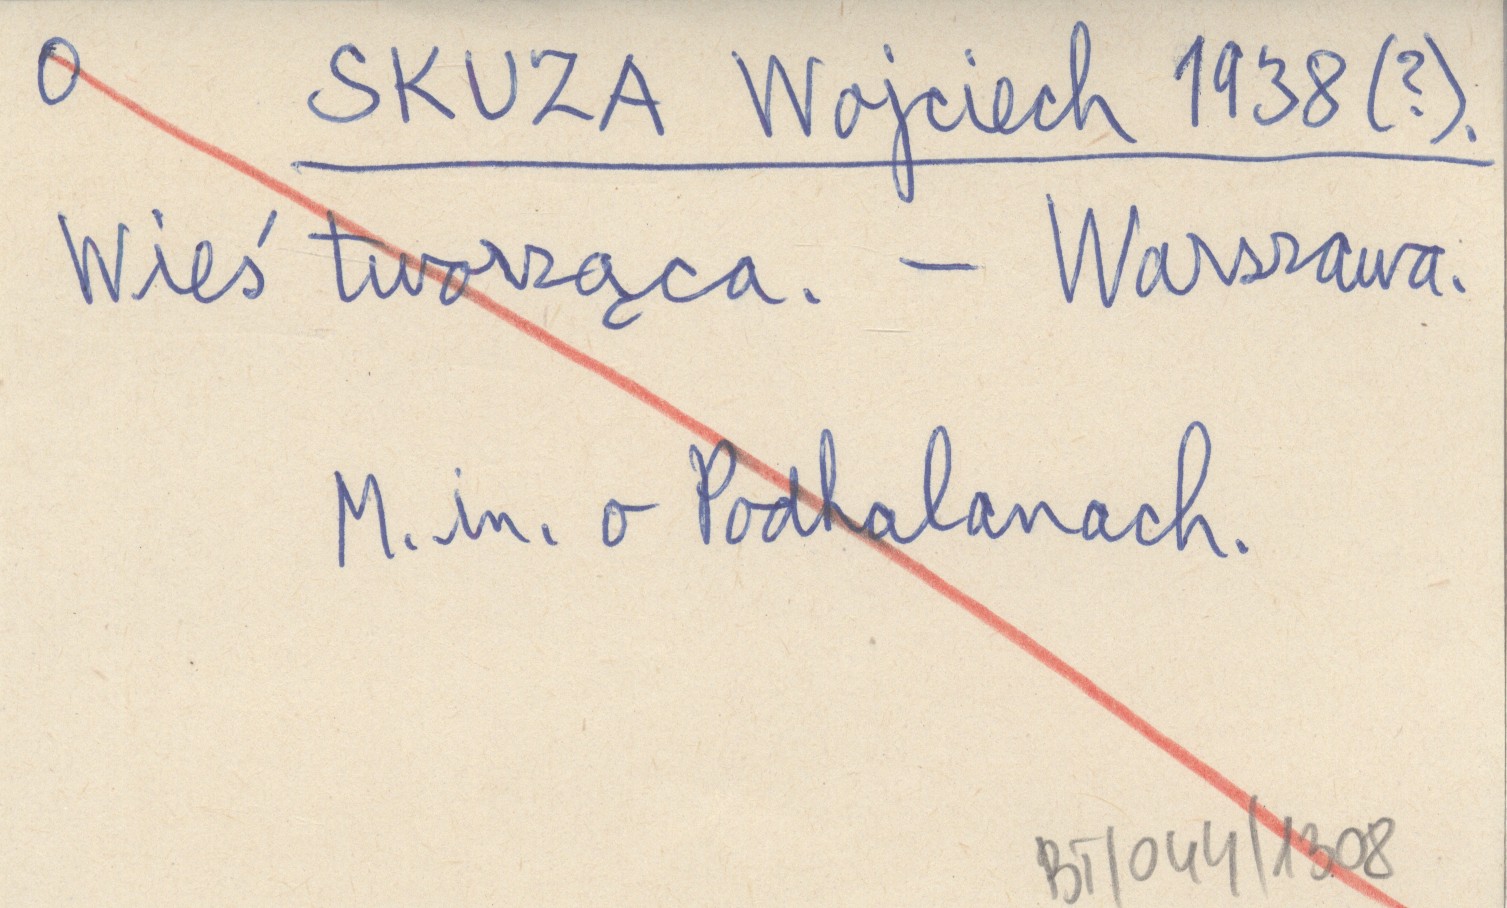 O SKUZA Wojciech 1938(?).
Wieś tworząca. – Warszawa.
M. in. o Podhalanach.
BT/044/1308